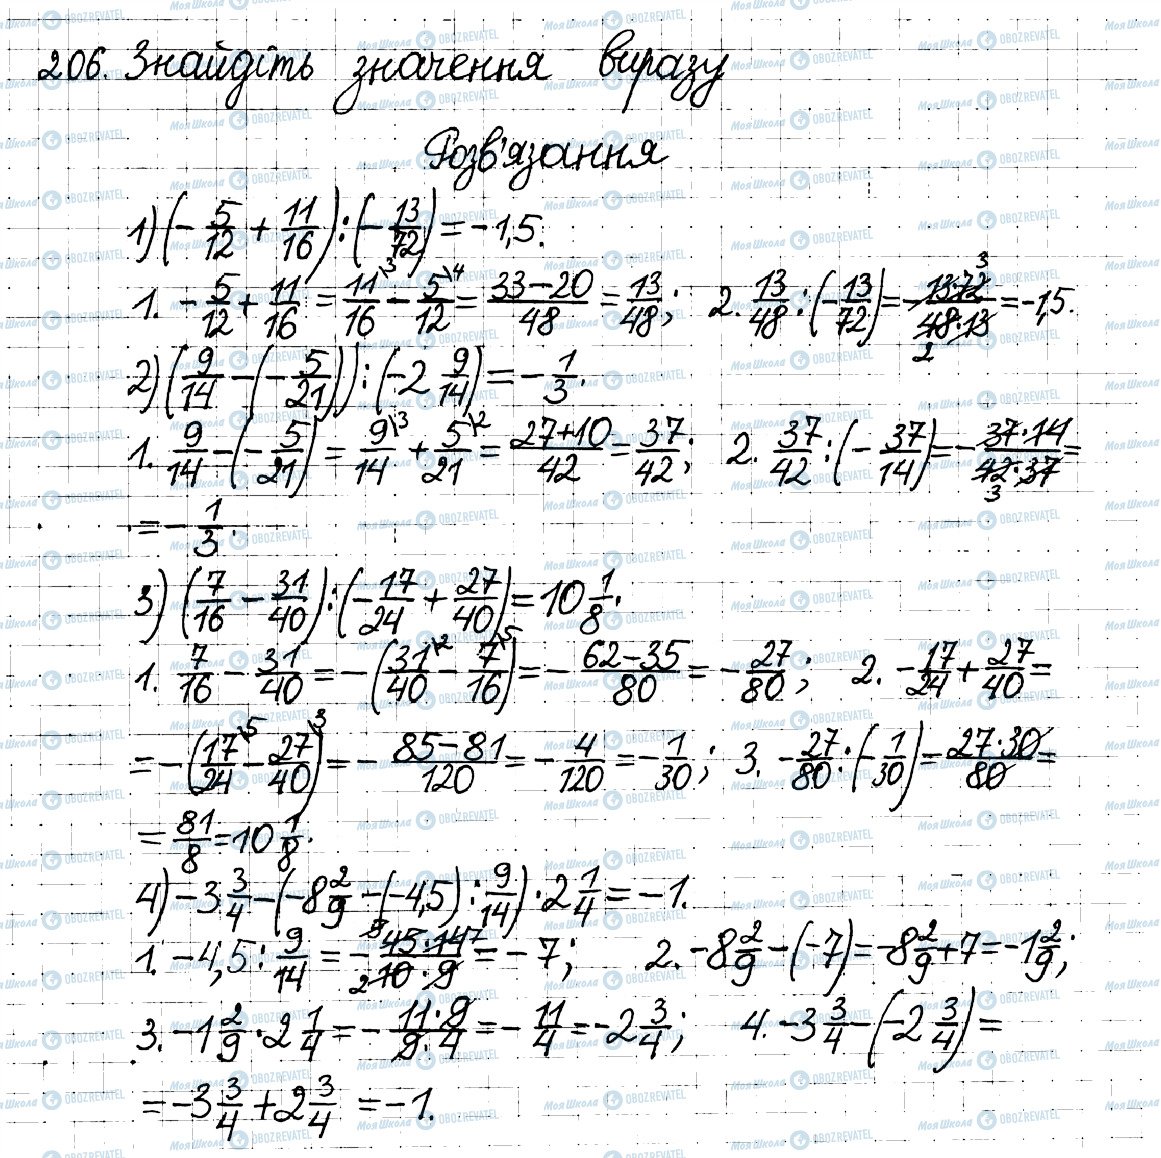 206. Знайдіть значення виразу
Розв'язання
1) (-5/12 + 11/16) : (-13/72) = -1,5.
1. -5/12 + 11/16 = 11\3/16 - 5\4/12 = (33-20)/48 = 13/48; 2. 13/48 : (-13/72) = -(13·72 3)/(48·13 2) = -1,5.
2) (9/14 - (-5/21)) : (-2 9/14) = -1/3.
1. 9/14 - (-5/21) = 9\3/14 + 5\2/21 = (27+10)/42 = 37/42; 2. 37/42 : (-37/14) = -(37·14)/(42·37 3) =
= -1/3.
3) (7/16 - 31/40) : (-17/24 + 27/40) = 10 1/8.
1. 7/16 - 31/40 = -(31\2/40 - 7\5/16) = -(62-35)/80 = -27/80; 2. -17/24 + 27/40 =
= -(17\5/24 - 27\3/40) = -(85-81)/120 = -4/120 = -1/30; 3. -27/80 : (-1/30) = (27·30)/80 =
= 81/8 = 10 1/8.
4) -3 3/4 - (-8 2/9 - (-4,5) : 9/14) · 2 1/4 = -1.
1. -4,5 : 9/14 = -(5 45·14 7)/(2 10·9) = -7; 2. -8 2/9 - (-7) = -8 2/9 + 7 = -1 2/9;
3. -1 2/9 · 2 1/4 = -(11·9)/(9·4) = -11/4 = -2 3/4; 4. -3 3/4 - (-2 3/4) =
= -3 3/4 + 2 3/4 = -1.
МояШкола OBOZREVATEL